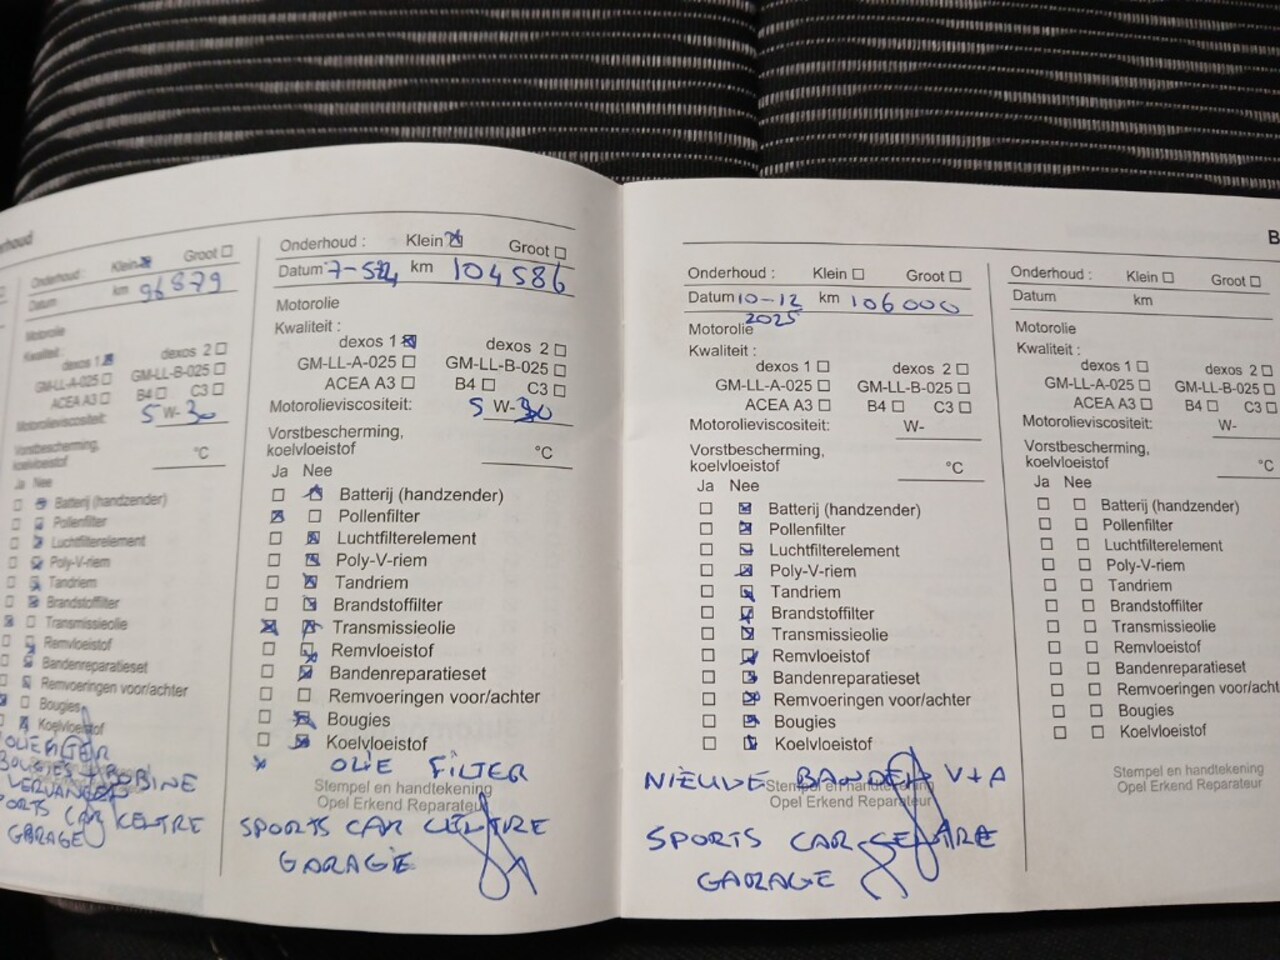 Onderhoud : Klein ☒ Groot ☐
Datum km 96879
Motorolie
Kwaliteit :
dexos 1 ☒ dexos 2 ☐
GM-LL-A-025 ☐ GM-LL-B-025 ☐
ACEA A3 ☐ B4 ☐ C3 ☐
Motorolieviscositeit: 5 W-30
Vorstbescherming,
koelvloeistof °C
Ja Nee
Batterij (handzender)
Pollenfilter
Luchtfilterelement
Poly-V-riem
Tandriem
Brandstoffilter
Transmissieolie
Remvloeistof
Bandenreparatieset
Remvoeringen voor/achter
Bougies
Koelvloeistof
OLIEFILTER
BOUGIES + BOBINE
VERVANGEN
SPORTS CAR CENTRE
GARAGE
Onderhoud : Klein ☒ Groot ☐
Datum km 104586
Motorolie
Kwaliteit :
dexos 1 ☒ dexos 2 ☐
GM-LL-A-025 ☐ GM-LL-B-025 ☐
ACEA A3 ☐ B4 ☐ C3 ☐
Motorolieviscositeit: 5 W-30
Vorstbescherming,
koelvloeistof °C
Ja Nee
☐ ☒ Batterij (handzender)
☒ ☐ Pollenfilter
☐ ☒ Luchtfilterelement
☐ ☒ Poly-V-riem
☐ ☒ Tandriem
☐ ☒ Brandstoffilter
☒ ☒ Transmissieolie
☐ ☒ Remvloeistof
☐ ☒ Bandenreparatieset
☐ ☐ Remvoeringen voor/achter
☐ ☒ Bougies
☐ ☒ Koelvloeistof
x OLIE FILTER
Stempel en handtekening
Opel Erkend Reparateur
SPORTS CAR CENTRE
GARAGE
Onderhoud : Klein ☐ Groot ☐
Datum 10-12 km 106000
2025
Motorolie
Kwaliteit :
dexos 1 ☐ dexos 2 ☐
GM-LL-A-025 ☐ GM-LL-B-025 ☐
ACEA A3 ☐ B4 ☐ C3 ☐
Motorolieviscositeit: W-
Vorstbescherming,
koelvloeistof °C
Ja Nee
☐ ☒ Batterij (handzender)
☐ ☒ Pollenfilter
☐ ☒ Luchtfilterelement
☐ ☒ Poly-V-riem
☐ ☒ Tandriem
☐ ☒ Brandstoffilter
☐ ☒ Transmissieolie
☐ ☒ Remvloeistof
☐ ☒ Bandenreparatieset
☐ ☒ Remvoeringen voor/achter
☐ ☒ Bougies
☐ ☒ Koelvloeistof
NIEUVE BANDEN V+A
Stempel en handtekening
Opel Erkend Reparateur
SPORTS CAR CENTRE
GARAGE
Onderhoud : Klein ☐ Groot ☐
Datum km
Motorolie
Kwaliteit :
dexos 1 ☐ dexos 2 ☐
GM-LL-A-025 ☐ GM-LL-B-025 ☐
ACEA A3 ☐ B4 ☐ C3 ☐
Motorolieviscositeit: W-
Vorstbescherming,
koelvloeistof °C
Ja Nee
☐ ☐ Batterij (handzender)
☐ ☐ Pollenfilter
☐ ☐ Luchtfilterelement
☐ ☐ Poly-V-riem
☐ ☐ Tandriem
☐ ☐ Brandstoffilter
☐ ☐ Transmissieolie
☐ ☐ Remvloeistof
☐ ☐ Bandenreparatieset
☐ ☐ Remvoeringen voor/acht
☐ ☐ Bougies
☐ ☐ Koelvloeistof
Stempel en handtekening
Opel Erkend Reparateur